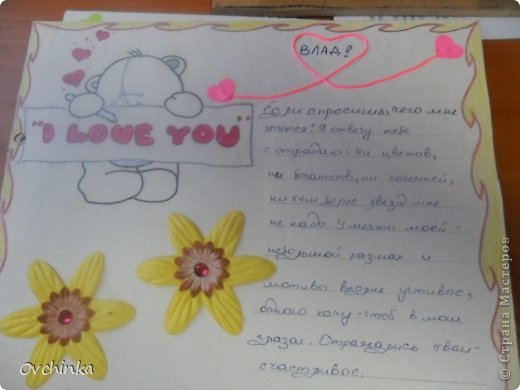 ВЛАД!
"I LOVE YOU"
Если спросишь, чего мне
хочется? Я отвечу тебе
с отрадою: Ни цветов,
ни богатств, ни почестей,
ни там звезд мне
не надо. У мечты моей-
небольшой размах и
мотивы вполне учтивые,
одного хочу-чтоб в моих
глазах. Отражались твои-
счастливые.
Ovchinka
© Страна Мастеров